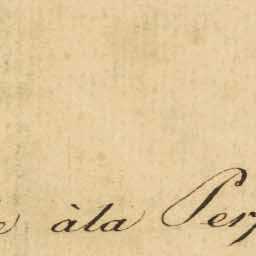 àla Per